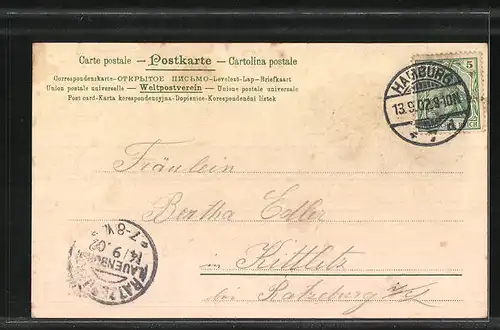 Carte postale – Postkarte – Cartolina postale
Correspondenzkarte-ОТКРЫТОЕ ПИСЬМО-Levelezö-Lap-Briefkaart
Union postale universelle – Weltpostverein – Unione postale universale
Post card-Karta korespondencyjna-Dopisnice-Korespondenční lístek
5
HAMBURG
13.9.02.9-10N
Fräulein
Bertha Edler
in Kittlitz
bei Ratzeburg
7-8V.
14/9.02
LAUENBURG